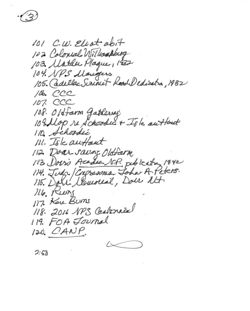 3
101 C.W. Eliot obit
102 Colonial Williamsburg
103. Mather Plaque, 1932
104. NPS Managers
105. Cadillac Summit Road Dedication, 1932
106. CCC
107. CCC
108. Oldfarm Gathering
109. Map re Schoodic + Isle au Haut
110. Schoodic
111. Isle au Haut
112. Dorr saving Oldfarm
113. Dorr's Acadia NP publication, 1942
114. Judge/Congressman John A. Peters
115. Dorr Memorial, Dorr Mt
116. Ruins
117. Ken Burns
118. 2016 NPS Centennial
119. FOA Journal
120. OANP